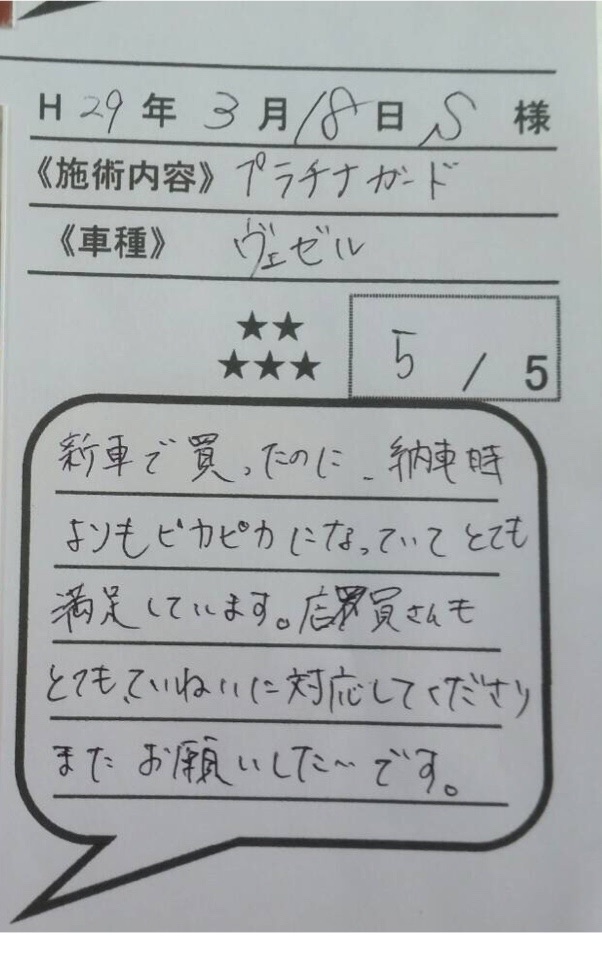 H 29年 3月 18日 S 様
《施術内容》 プラチナガード
《車種》 ヴェゼル
★★
★★★
5 / 5
新車で買ったのに、納車時
よりもピカピカになっていてとても
満足しています。店員さんも
とても、ていねいに対応してくださり
またお願いした〜です。